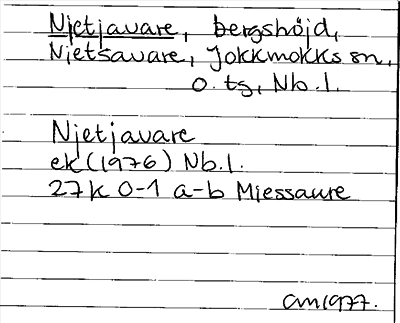 Njetjavare, bergshöjd,
Njetsavare, Jokkmokks sn,
o. tg, Nb.l.
Njetjavare
ek (1976) Nb.l.
27k 0-1 a-b Miessaure
CM 1977.